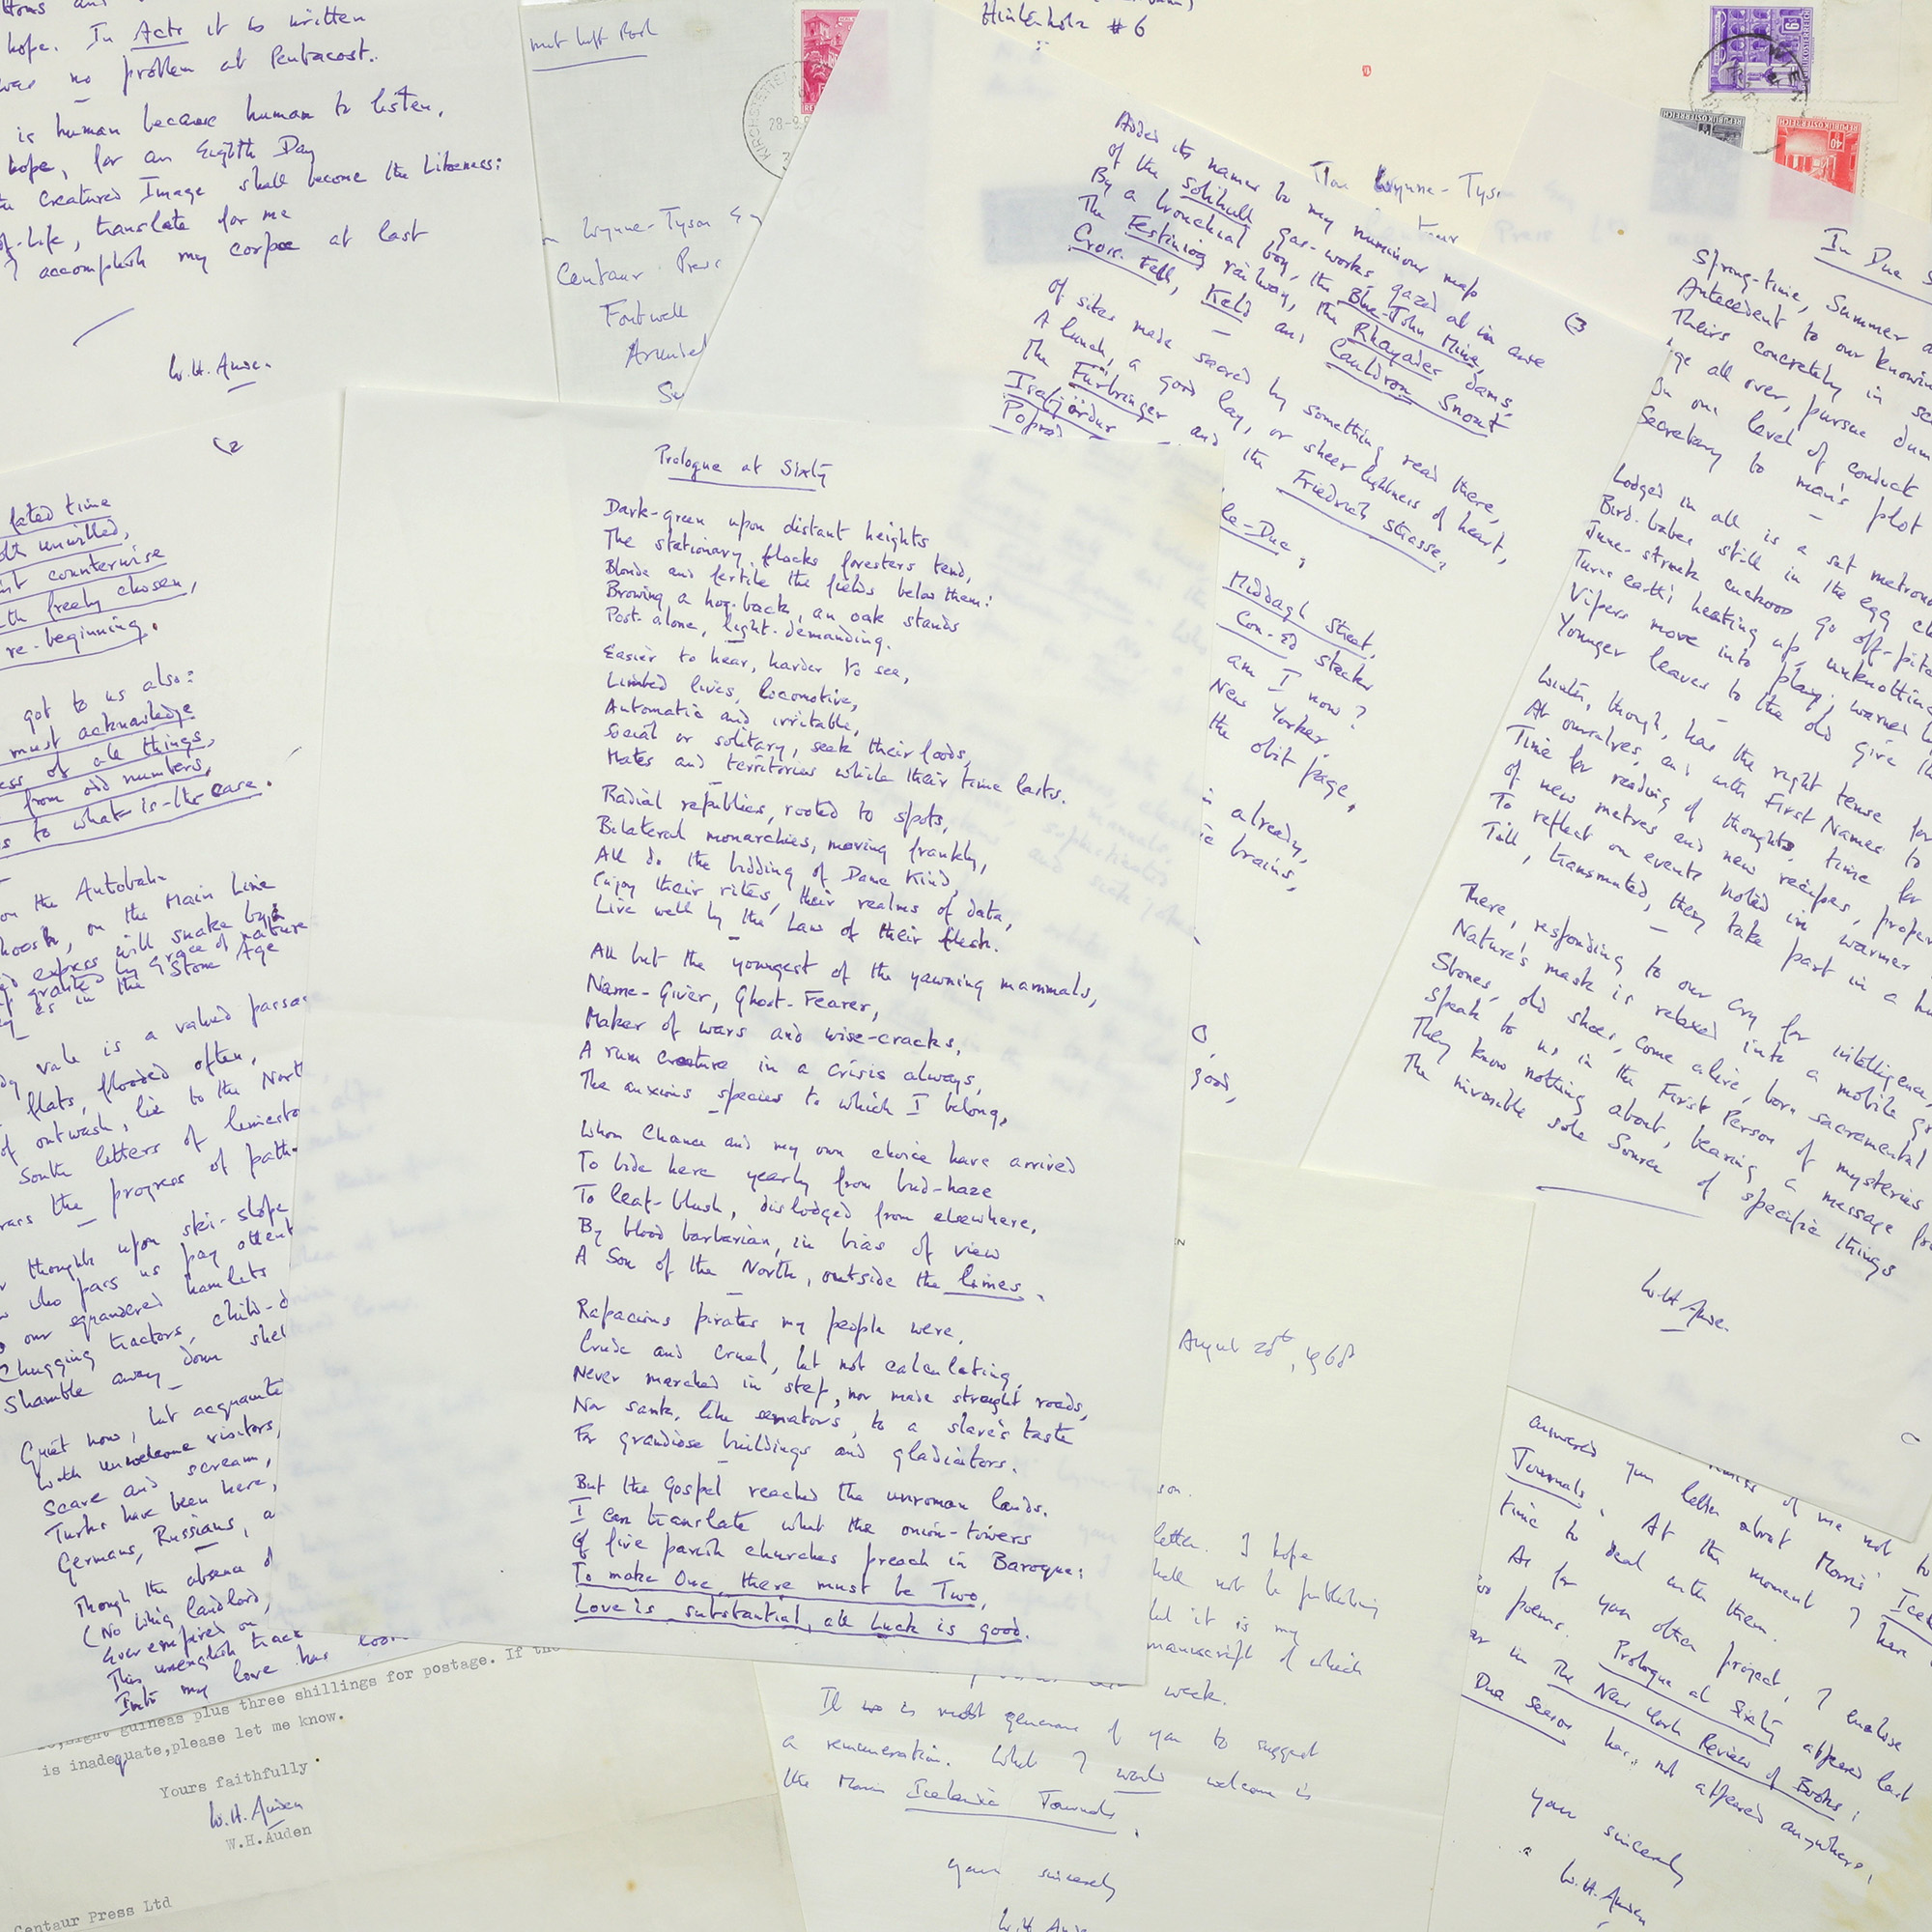 hope. In Acts it is written
was no problem at Pentacost.
is human because human to listen,
hope, for an Eighth Day
Creatured Image shall become the Likeness:
of-Life, translate for me
I accomplish my corpse at last
W.H. Auden.
KIRCHSTETTEN
28-9
Wynne-Tyson Esq
Centaur Press
Fontwell
Arundel
Hinterholz # 6
REPUBLIK ÖSTERREICH
Wynne-Tyson
(3
Added its names to my numinous map
of the Solihull gas-works, gazed at in awe
By a bronchial boy, the Blue-John Mine,
The Festiniog railway, the Rhayader dams,
Cross Fell, Keld and Cauldron Snout
of sites made sacred by something read there,
A lunch, a good lay, or sheer lightness of heart,
The Fürbringer and the Friedrich Strasse,
Isafjördur
Poprad
le-Duc,
Middagh Street,
Con-Ed stacks
am I now?
New Yorker,
the obit page,
already,
brains,
good,
In Due S
Spring-time, Summer a
Antecedent to our knowin
Theirs concretely in se
ge all over, pursue dum
On one level of conduct
Secretary to man's plot
Lodged in all is a set metrono
Bird-babes still in the egg cl
June-struck cuckoos go off-pitc
Turn earth's heating up, unknotting
Vipers move into play, warned b
Younger leaves to the old give th
Winter, though, has the right tense for
At ourselves, and with First Names to
Time for reading of thoughts, time for
Of new metres and new recipes, proper
To reflect on events noted in warmer
Till, transmuted, they take part in a hu
There, responding to our cry for intelligence,
Nature's mask is relaxed into a mobile gr
Stones, old shoes, come alive, born sacramental
Speak to us in the First Person of mysteries
They know nothing about, bearing a message fro
The invisible sole Source of specific things
W.H Auden.
(2
fated time
unwilled,
counterwise
freely chosen,
re-beginning.
got to us also:
must acknowledge
ess of all things,
from odd numbers,
s to what-is-the-case.
on the Autobahn
hoosh, on the Main Line
express will snake by,
granted by grace of nature
as in the Stone Age
vale is a valued passa
flats, flooded often,
of outwash, lie to the Nort
South litters of limesto
the progress of path-
thoughts upon ski-slope
who pass us pay attent
our squandered hamlets
Chugging tractors, child-d
Shamble away down shel
Quiet now, but acquainte
With unwelcome visitors,
Scare and scream,
Turks have been here,
Germans, Russians, a
Though the absence of
(No liking landlord,
Ever empired on
This unenglish tract
Into my love has
Prologue at Sixty
Dark-green upon distant heights
The stationary flocks foresters tend,
Blonde and fertile the fields below them:
Browing a hog-back, an oak stands
Post-alone, light-demanding.
Easier to hear, harder to see,
Limbed lives, locomotive,
Automatic and irritable,
Social or solitary, seek their foods,
Mates and territories while their time lasts.
Radial republics, rooted to spots,
Bilateral monarchies, moving frankly,
All do the bidding of Dame Kind,
Enjoy their rites, their realms of data,
Live well by the Law of their flesh.
All but the youngest of the yawning mammals,
Name-Giver, Ghost-Fearer,
Maker of wars and wise-cracks,
A rum creature in a crisis always,
The anxious species to which I belong,
Whom Chance and my own choice have arrived
To bide here yearly from bud-haze
To leaf-blush, dislodged from elsewhere,
By blood barbarian, in bias of view
A Son of the North, outside the limes.
Rapacious pirates my people were,
Crude and cruel, but not calculating,
Never marched in step, nor made straight roads,
Nor sank, like senators, to a slave's taste
For grandiose buildings and gladiators.
But the Gospel reached the unroman lands.
I can translate what the onion-towers
Of five parish churches preach in Baroque:
To make One, there must be Two,
Love is substantial, all Luck is good.
August 28th, 1968
letter. I hope
shall not be publishing
but it is my
manuscript of which
week.
It is most generous of you to suggest
a remuneration. What I would welcome is
the Morris Icelandic Journals.
yours sincerely
W.H Auden
eight guineas plus three shillings for postage. If the
is inadequate, please let me know.
Yours faithfully
W.H. Auden
W.H.Auden
Centaur Press Ltd
of me not to
answered your letter about Morris' Icel
Journals. At the moment I have
time to deal with them.
As for your other project, I enclose
poems. Prologue at Sixty appeared last
in The New York Review of Books:
Due season has not appeared anywhere,
your sincerely
W.H. Auden